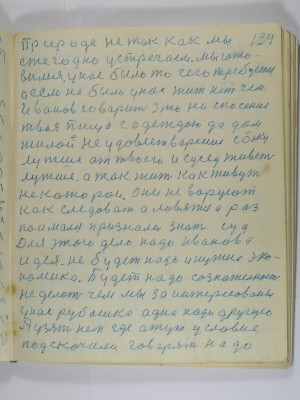 природе не так как мы 124
ежегодно встречаем. мы гото-
вился, у нас было то чего требуем
а если не было у нас жит нет чем
Иванов говарит Это не спасение
твоя пища с одеждою да дом
жилой не удовлетварение сбоку
лутше от твоего и сусед живет
лутше. а как жит как живут
некоторои. Они не варуют
как следоват а ловятся раз
поамали признали знат суд
Для этого дело надо Иванова
идея. не будет надо и нужно эко-
номика. Будет надо сознательност
не делот чем мы заинтересованы
у нас рубашка адна надо другую
А взят нет где а тут условие
подскочили говарят надо